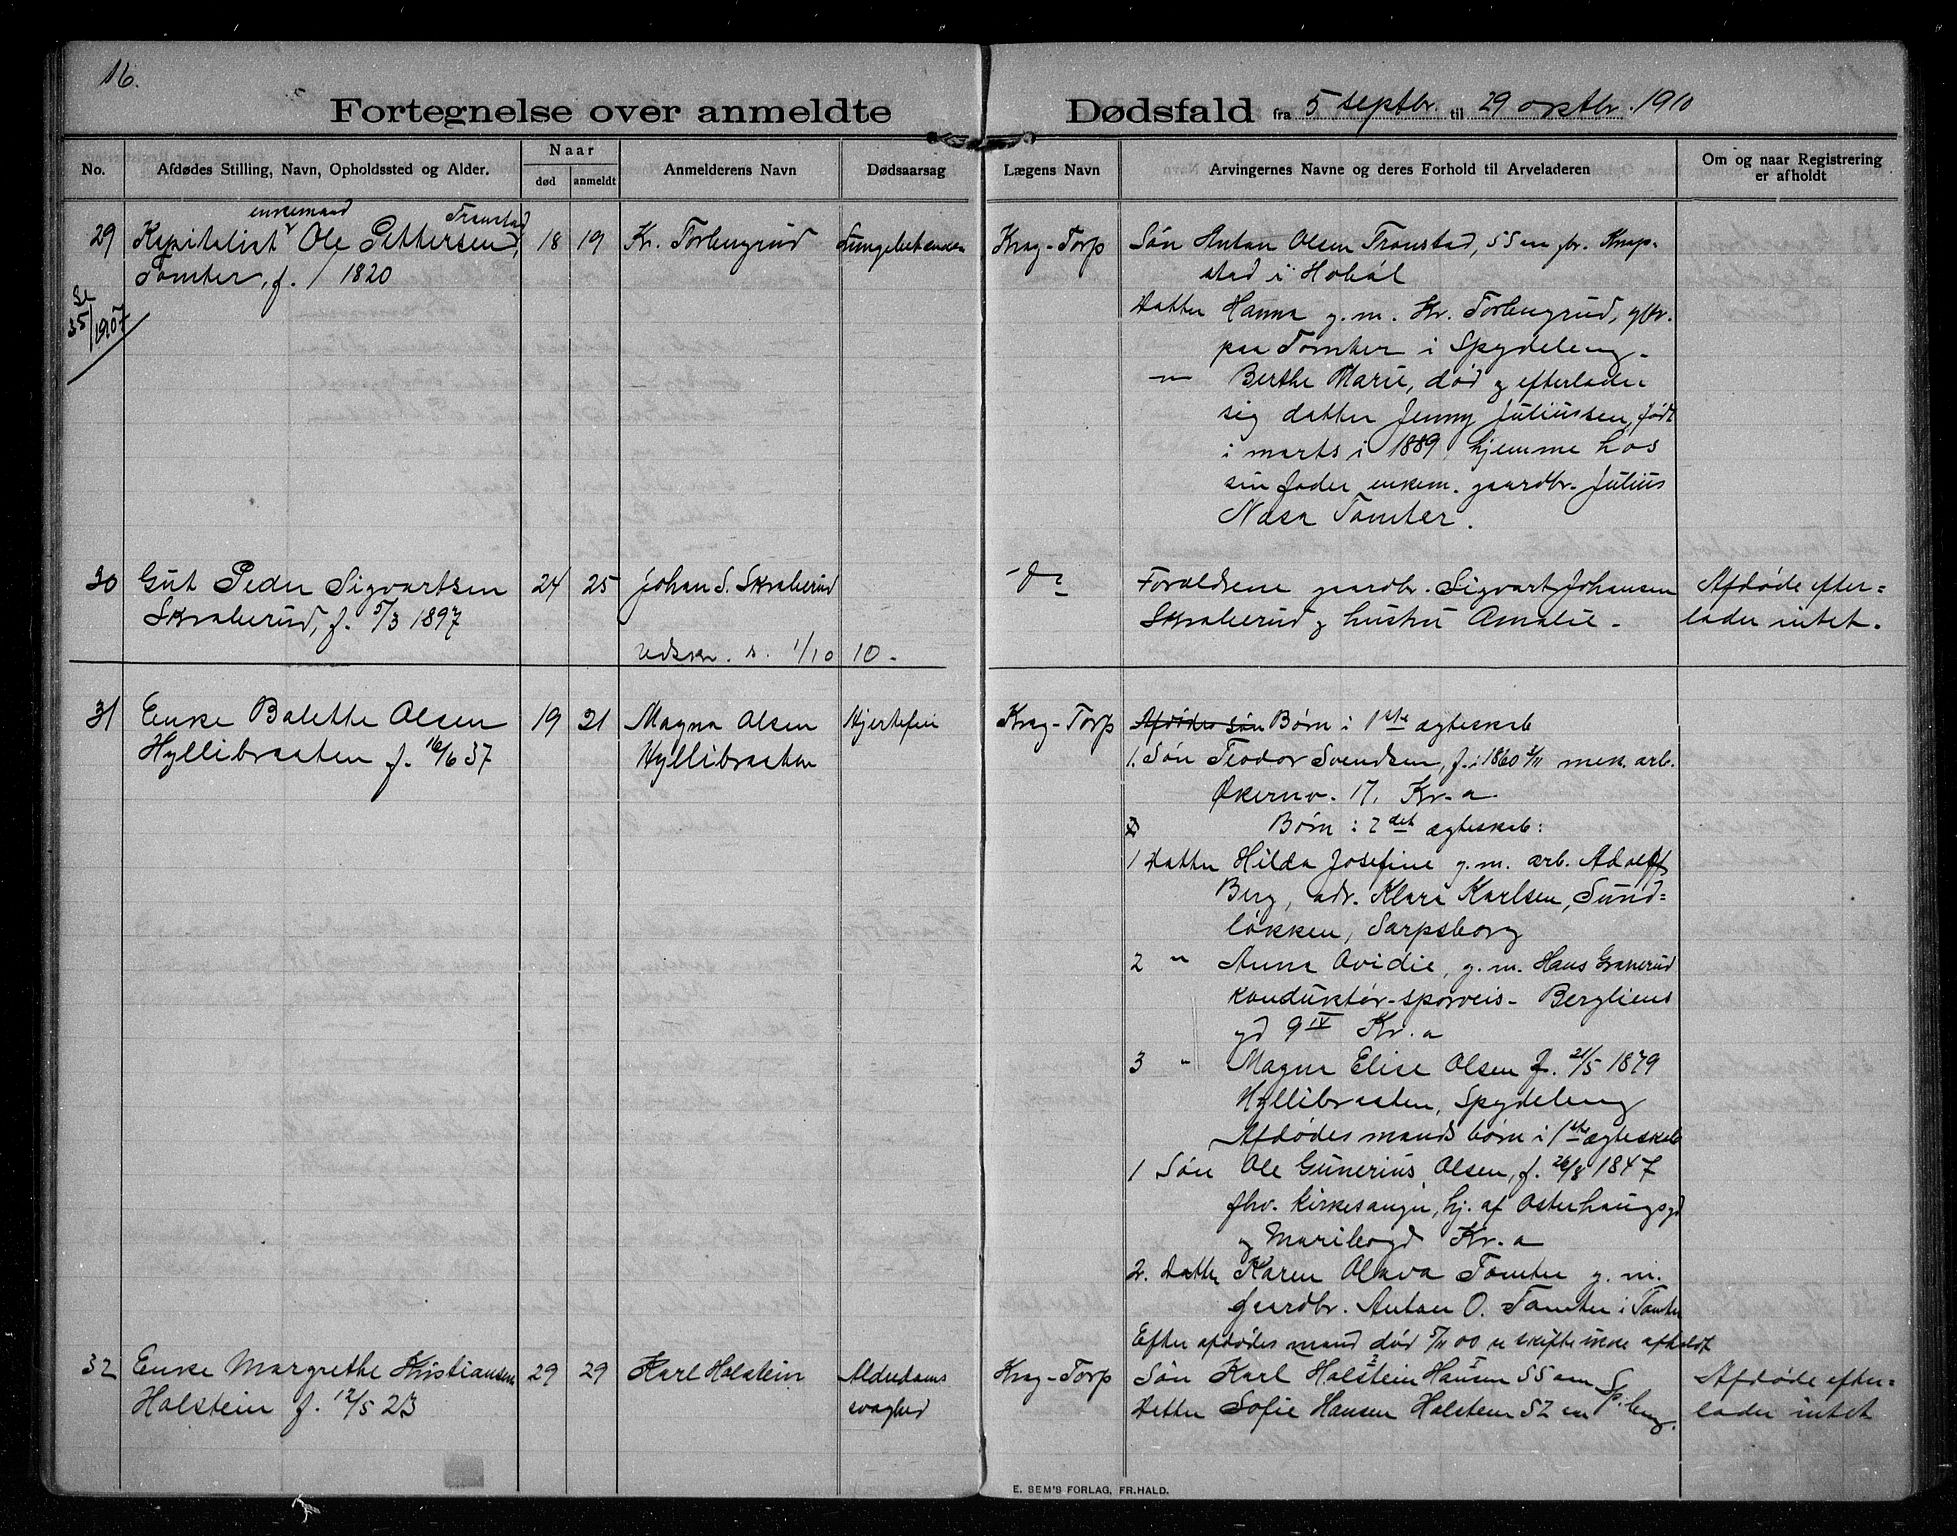 16.
Fortegnelse over anmeldte Dødsfald fra 5 septbr. til 29 oktbr. 1910
No. Afdødes Stilling, Navn, Opholdssted og Alder. Naar død anmeldt Anmelderens Navn Dødsaarsag Lægens Navn Arvingernes Navne og deres Forhold til Arveladeren Om og naar Registrering er afholdt
enkemand Tronstad
29 Kapitalist Ole Pettersen, 18 19 Kr. Torbengrud Lungebetændelse Krag-Torp Søn Anton Olsen Tronstad, 55 aar gbr. Knap-
Tomter, f. / 1820 stad i Hobøl
Se 35/1907
Datter Hanna g. m. Kr. Torbengrud, gbr.
paa Tomter i Spydeberg.
" Berthe Marie, død og efterlader
sig datter Jenny Juliussen, født
i marts i 1889, hjemme hos
sin fader enkem. gaardbr. Julius
Næsa Tomter.
30 Gut Peder Sigvartsen 24 25 Johan S. Skraberud do Forældrene gaardbr. Sigvart Johansen Afdøde efter=
Skraberud, f. 5/3 1897 Skraberud og hustru Amalie. lader intet.
Udskr. s. 1/10 10.
31 Enke Balette Olsen 19 21 Magna Olsen Hjertefeil Krag-Torp Afdødes søn Børn i 1ste ægteskab
Hyllibraaten f. 16/6 37 Hyllibraaten 1. Søn Teodor Svendsen, f. i 1860 mek. arb.
Økernv. 17. Kr.a
Børn i 2det ægteskab:
1 Datter Hilda Josefine g. m. arb. Adolf
Berg, adr. Klara Karlsen, Sund=
løkken, Sarpsborg
2 " Anna Ovidie, g. m. Hans Granerud
konduktør-sporveis- Bergliens
gd 9 IV Kr.a
3 " Magna Elise Olsen f. 21/5 1879
Hyllibraaten, Spydeberg
Afdødes mands børn i 1ste ægteskab
1 Søn Ole Gunerius Olsen, f. 26/8 1847
fhv. kirkesanger, hj. af Osterhausgd
og Maribogd Kr.a
2. Datter Karen Olava Tomter g. m.
gaardbr. Anton O. Tomter i Tomter
Efter afdødes mand død 5/11 00 er skifte ikke afholdt
32 Enke Margrethe Kristiansen 29 29 Karl Holstein Alderdoms Krag-Torp Søn Karl Holstein Hansen 55 aar Sp.berg Afdøde efter-
Holstein f. 12/5 23 svaghed Datter Sofie Hansen Holstein 52 aar lader intet
E. SEM'S FORLAG, FR.HALD.